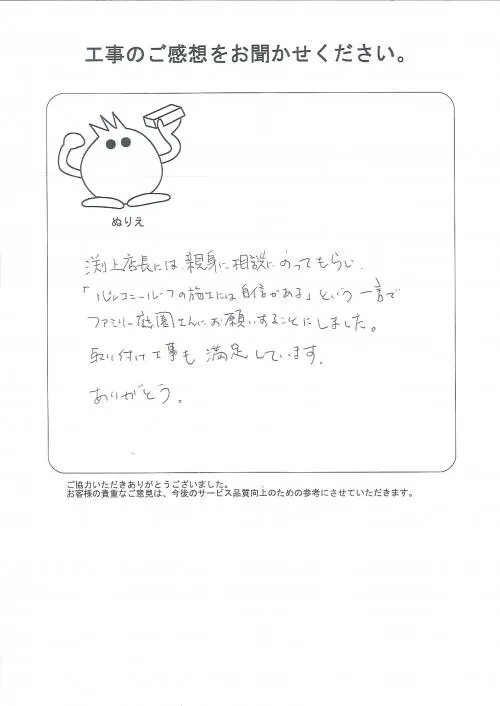 工事のご感想をお聞かせください。
ぬりえ
渕上店長には、親身に相談にのってもらい、
「バルコニールーフの施工には自信がある」という一言で
ファミリー庭園さんにお願いすることにしました。
取り付け工事も満足しています。
ありがとう。
ご協力いただきありがとうございました。
お客様の貴重なご意見は、今後のサービス品質向上のための参考にさせていただきます。